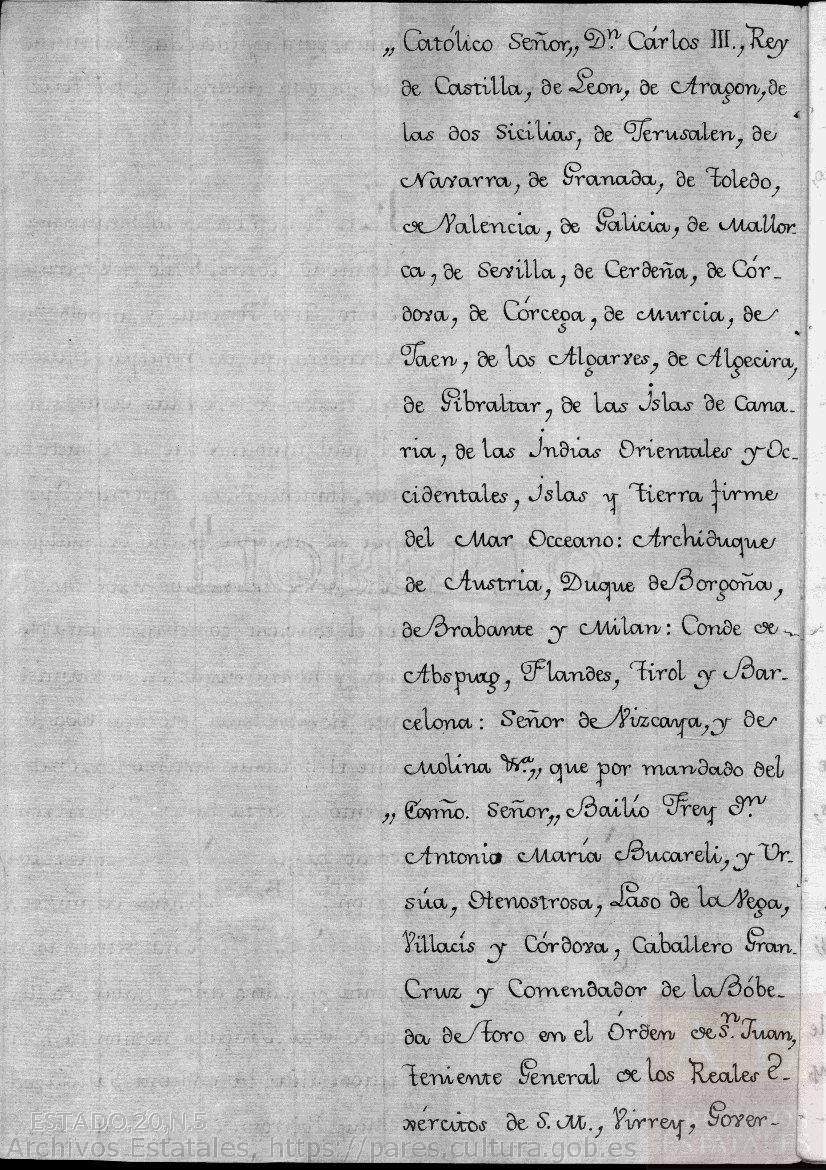 „Católico Señor„ Dn. Cárlos III., Rey
de Castilla, de Leon, de Aragon, de
las dos Sicilias, de Jerusalen, de
Navarra, de Granada, de Toledo,
de Valencia, de Galicia, de Mallor-
ca, de Sevilla, de Cerdeña, de Cór-
dova, de Córcega, de Murcia, de
Jaen, de los Algarves, de Algecira,
de Gibraltar, de las Islas de Cana-
ria, de las Indias Orientales y Oc-
cidentales, Islas y Tierra firme
del Mar Occeano: Archiduque
de Austria, Duque de Borgoña,
de Brabante y Milan: Conde de
Abspurg, Flandes, Tirol y Bar-
celona: Señor de Vizcaya, y de
Molina &a.„ que por mandado del
„Exmõ. Señor„ Bailío Frey Dn.
Antonio María Bucareli, y Ur-
súa, Henostrosa, Laso de la Vega,
Villacís y Córdova, Caballero Gran-
Cruz y Comendador de la Bóbe-
da de Toro en el Órden de Sn. Juan,
Teniente General de los Reales E-
xércitos de S. M., Virrey, Gover-
ESTADO,20,N.5
Archivos Estatales, https://pares.cultura.gob.es